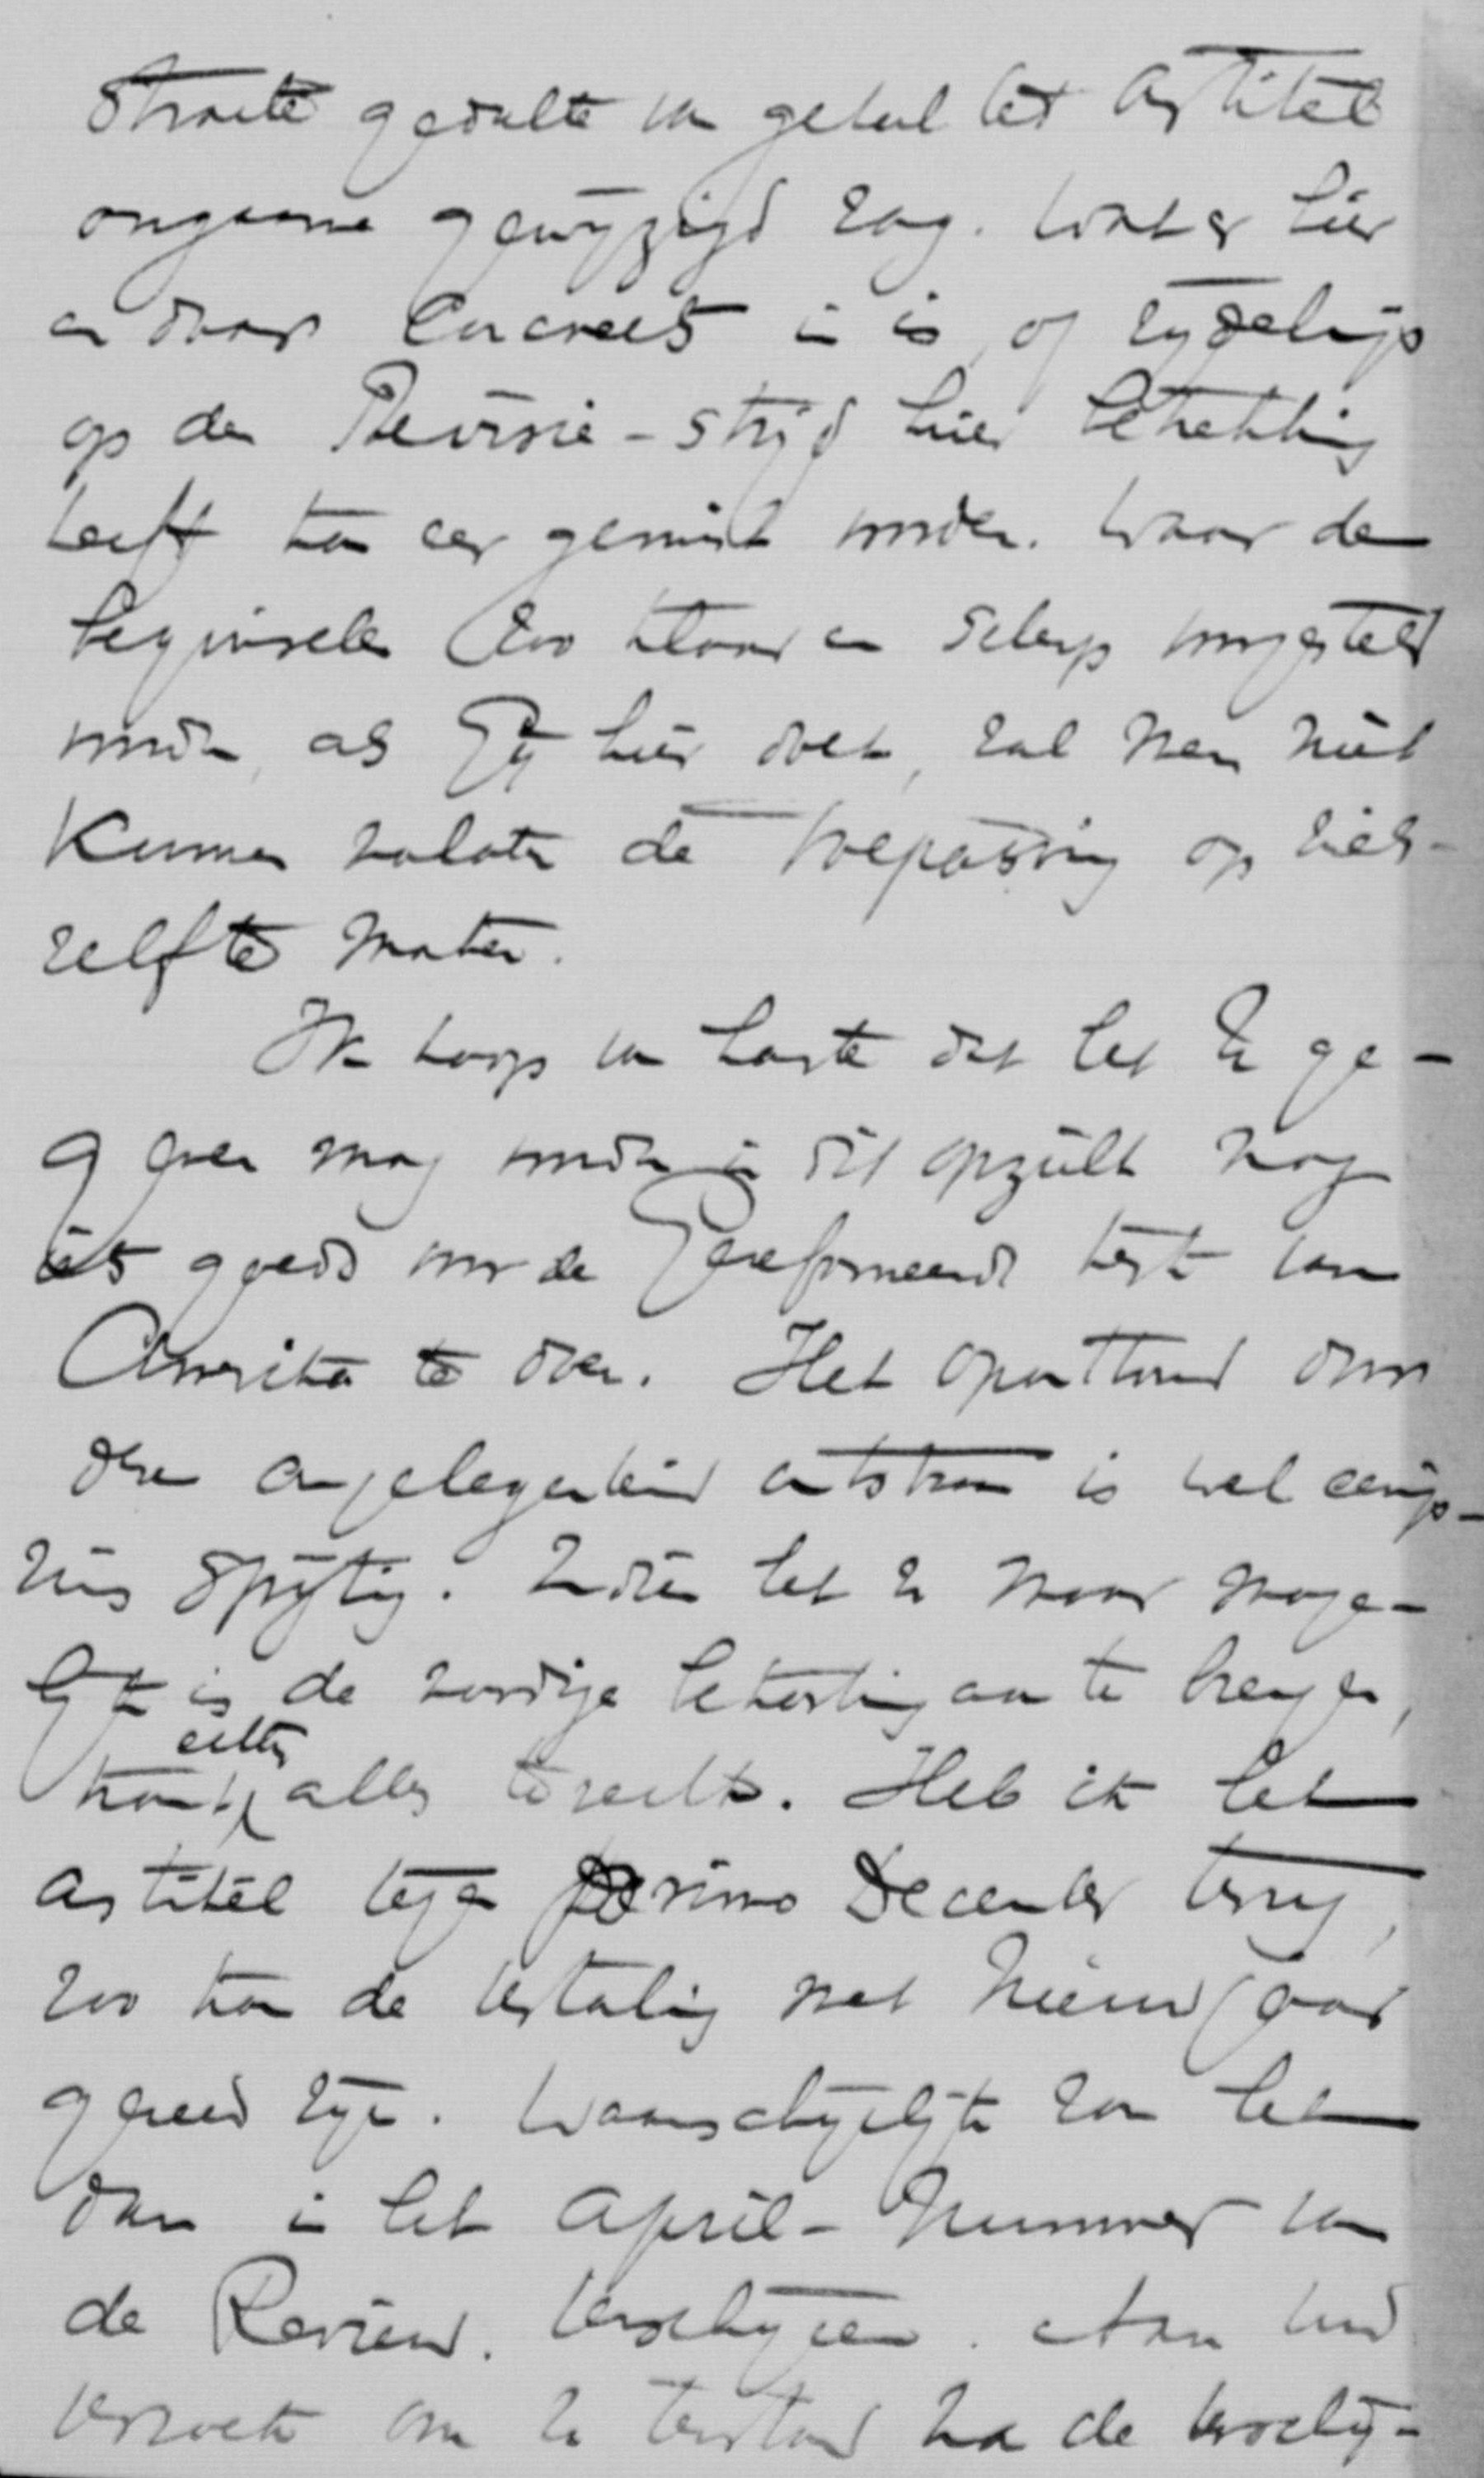 strakte gedeelte van geheel het artikel
ongaarne gewijzigd zag. Wat er hier
en daar concreets in is, of zijdelings
op den Revisie-strijd hier betrekking
heeft kan eer gemist worden. Waar de
beginselen zoo klaar en scherp voorgesteld
worden, als Gij hier doet, zal men niet
kunnen nalaten de toepassing op zich-
zelf te maken.
Ik hoop van harte dat het U ge-
geven mag worden in dit opzicht nog
iets goeds voor de Gereformeerde kerk van
Amerika te doen. Het oponthoud door
deze aangelegenheid ontstaan is wel eenigs-
zins spijtig. Indien het U maar moge-
lijk is de noodige bekorting aan te brengen,
komt echter alles terecht. Heb ik het
artikel tegen primo December terug,
zoo kan de vertaling met Nieuwjaar
gereed zijn. Waarschijnlijk zou het
dan in het April-nummer van
de Review verschijnen. Aan Uw
verzoek om U terstond na de verschij-